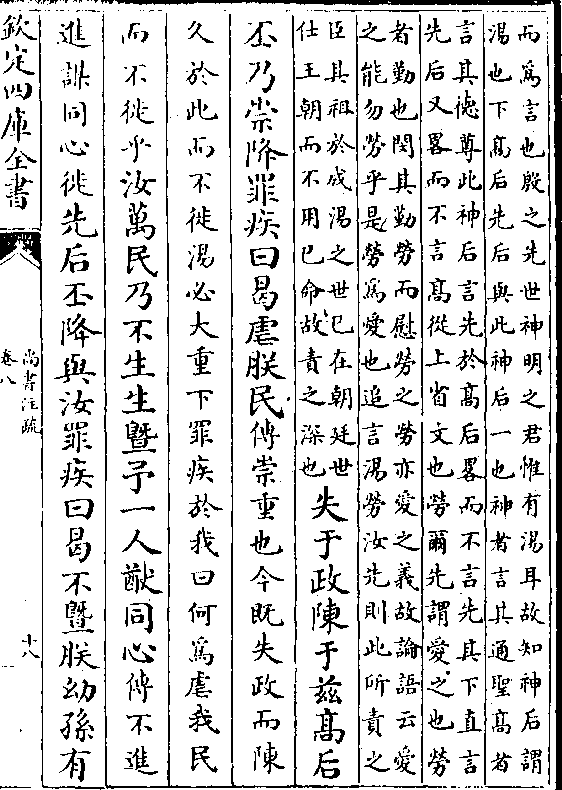 而爲言也殷之先世神明之君惟有湯耳故知神后謂
湯也下高后先后與此神后一也神者言其通聖高者
言其德尊此神后言先於高后畧而不言先其下直言
先后又畧而不言高從上省文也勞爾先謂愛之也勞
者勤也閔其勤勞而慰勞之勞亦愛之義故論語云愛
之能勿勞乎是勞爲愛也追言湯勞汝先則此所責之
臣其祖於成湯之世已在朝廷世
仕王朝而不用已命故責之深也
失于政陳于兹高后
丕乃崇降罪疾曰曷虐朕民傳崇重也今既失政而陳
久於此而不徙湯必大重下罪疾於我曰何爲虐我民
而不徙乎汝萬民乃不生生曁予一人猷同心傳不進
進謀同心徙先后丕降與汝罪疾曰曷不曁朕幼孫有
欽定四庫全書
尚書注疏
卷八
十八